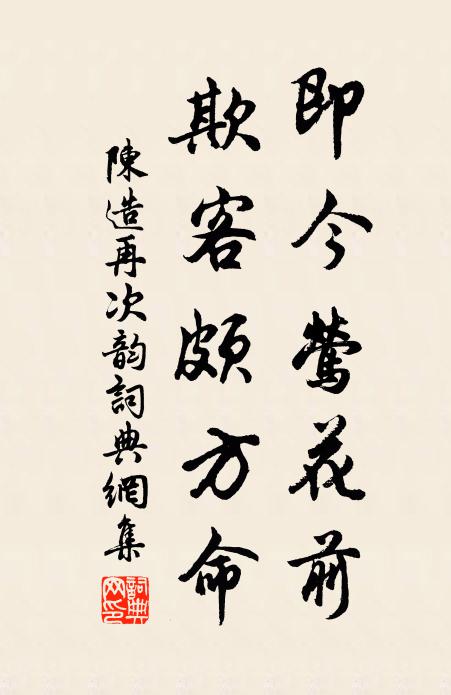 即今鶯花前
欺客頗方命
陳造再次韵詞典網集
詞典網印